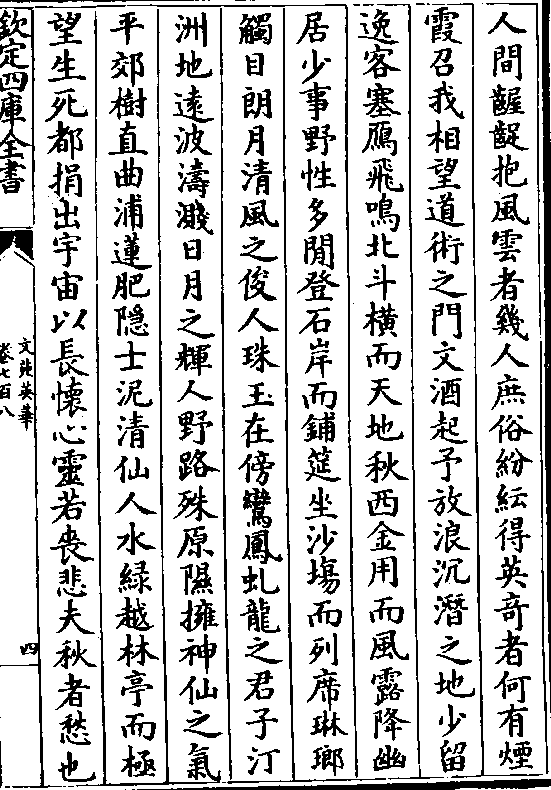 人間齷齪抱風雲者幾人庶俗紛紜得英奇者何有煙
霞召我相望道術之門文酒起予放浪沉潛之地少留
逸客塞鴈飛鳴北斗橫而天地秋西金用而風露降幽
居少事野性多閒登石岸而鋪筵坐沙塲而列席琳瑯
觸目朗月清風之俊人珠玉在傍鸞鳳虬龍之君子汀
洲地遠波濤濺日月之輝人野路殊原隰擁神仙之氣
平郊樹直曲浦蓮肥隠士泥清仙人水綠越林亭而極
望生死都捐出宇宙以長懷心靈若喪悲夫秋者愁也
欽定四庫全書
文苑英華
卷七百八
四